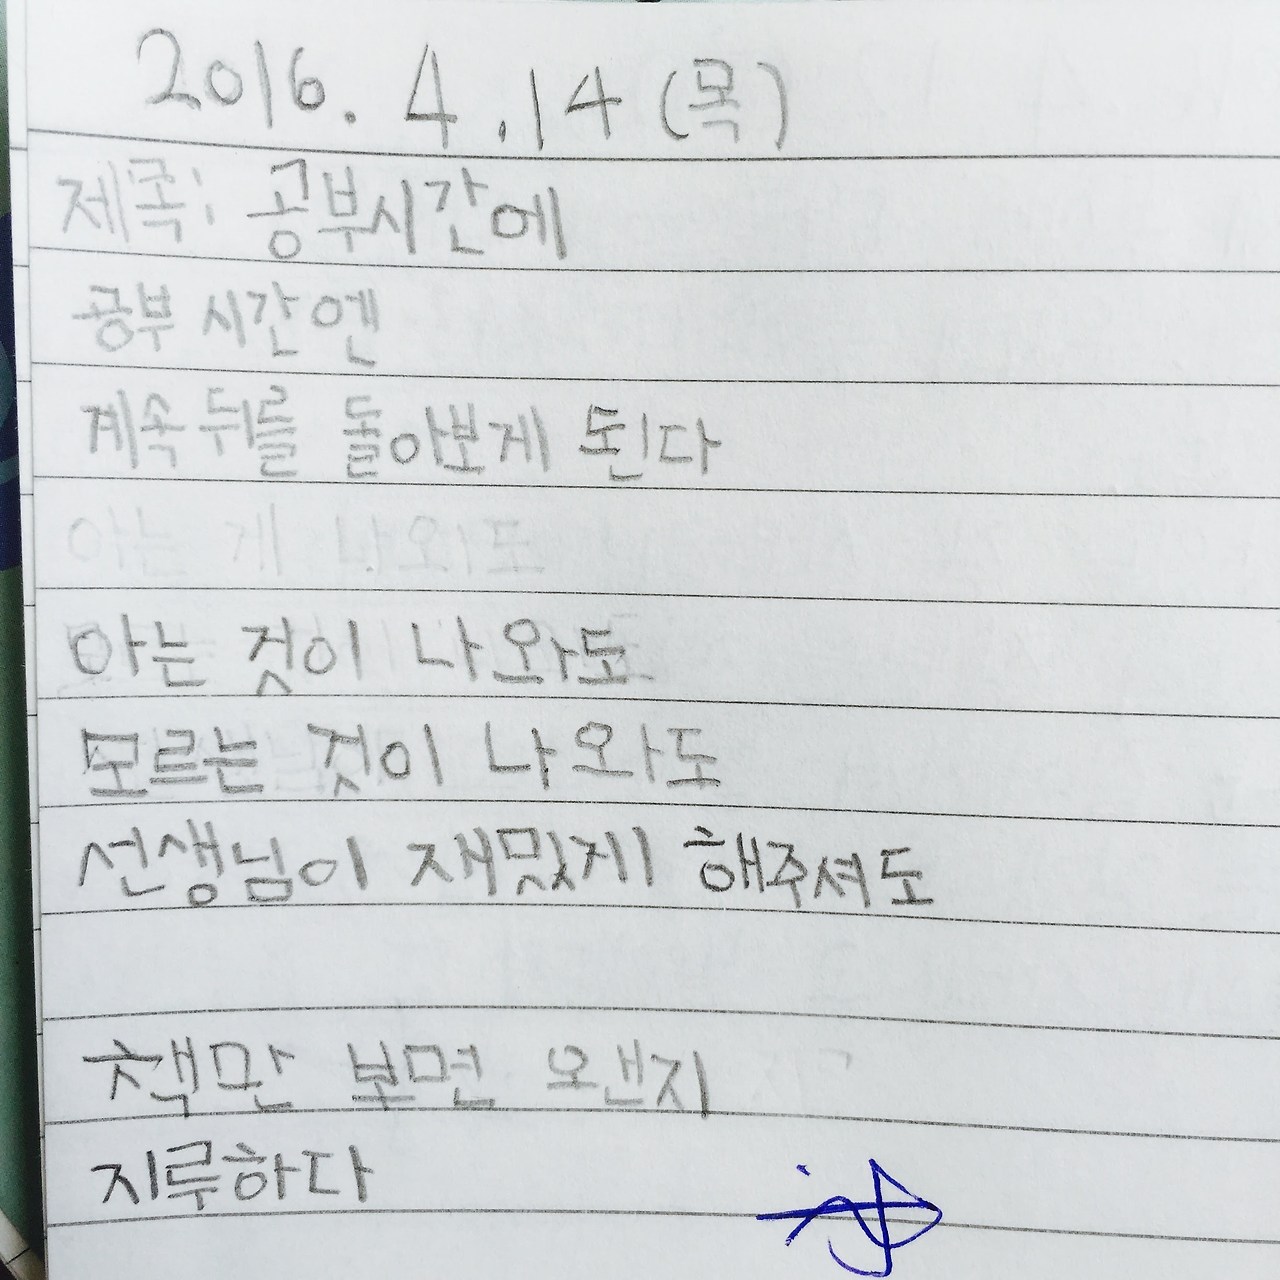 2016. 4. 14 (목)
제목: 공부시간에
공부 시간엔
계속 뒤를 돌아보게 된다
아는 게 나와도
아는 것이 나와도
모르는 것이 나와도
선생님이 재밌게 해주셔도
책만 보면 왠지
지루하다